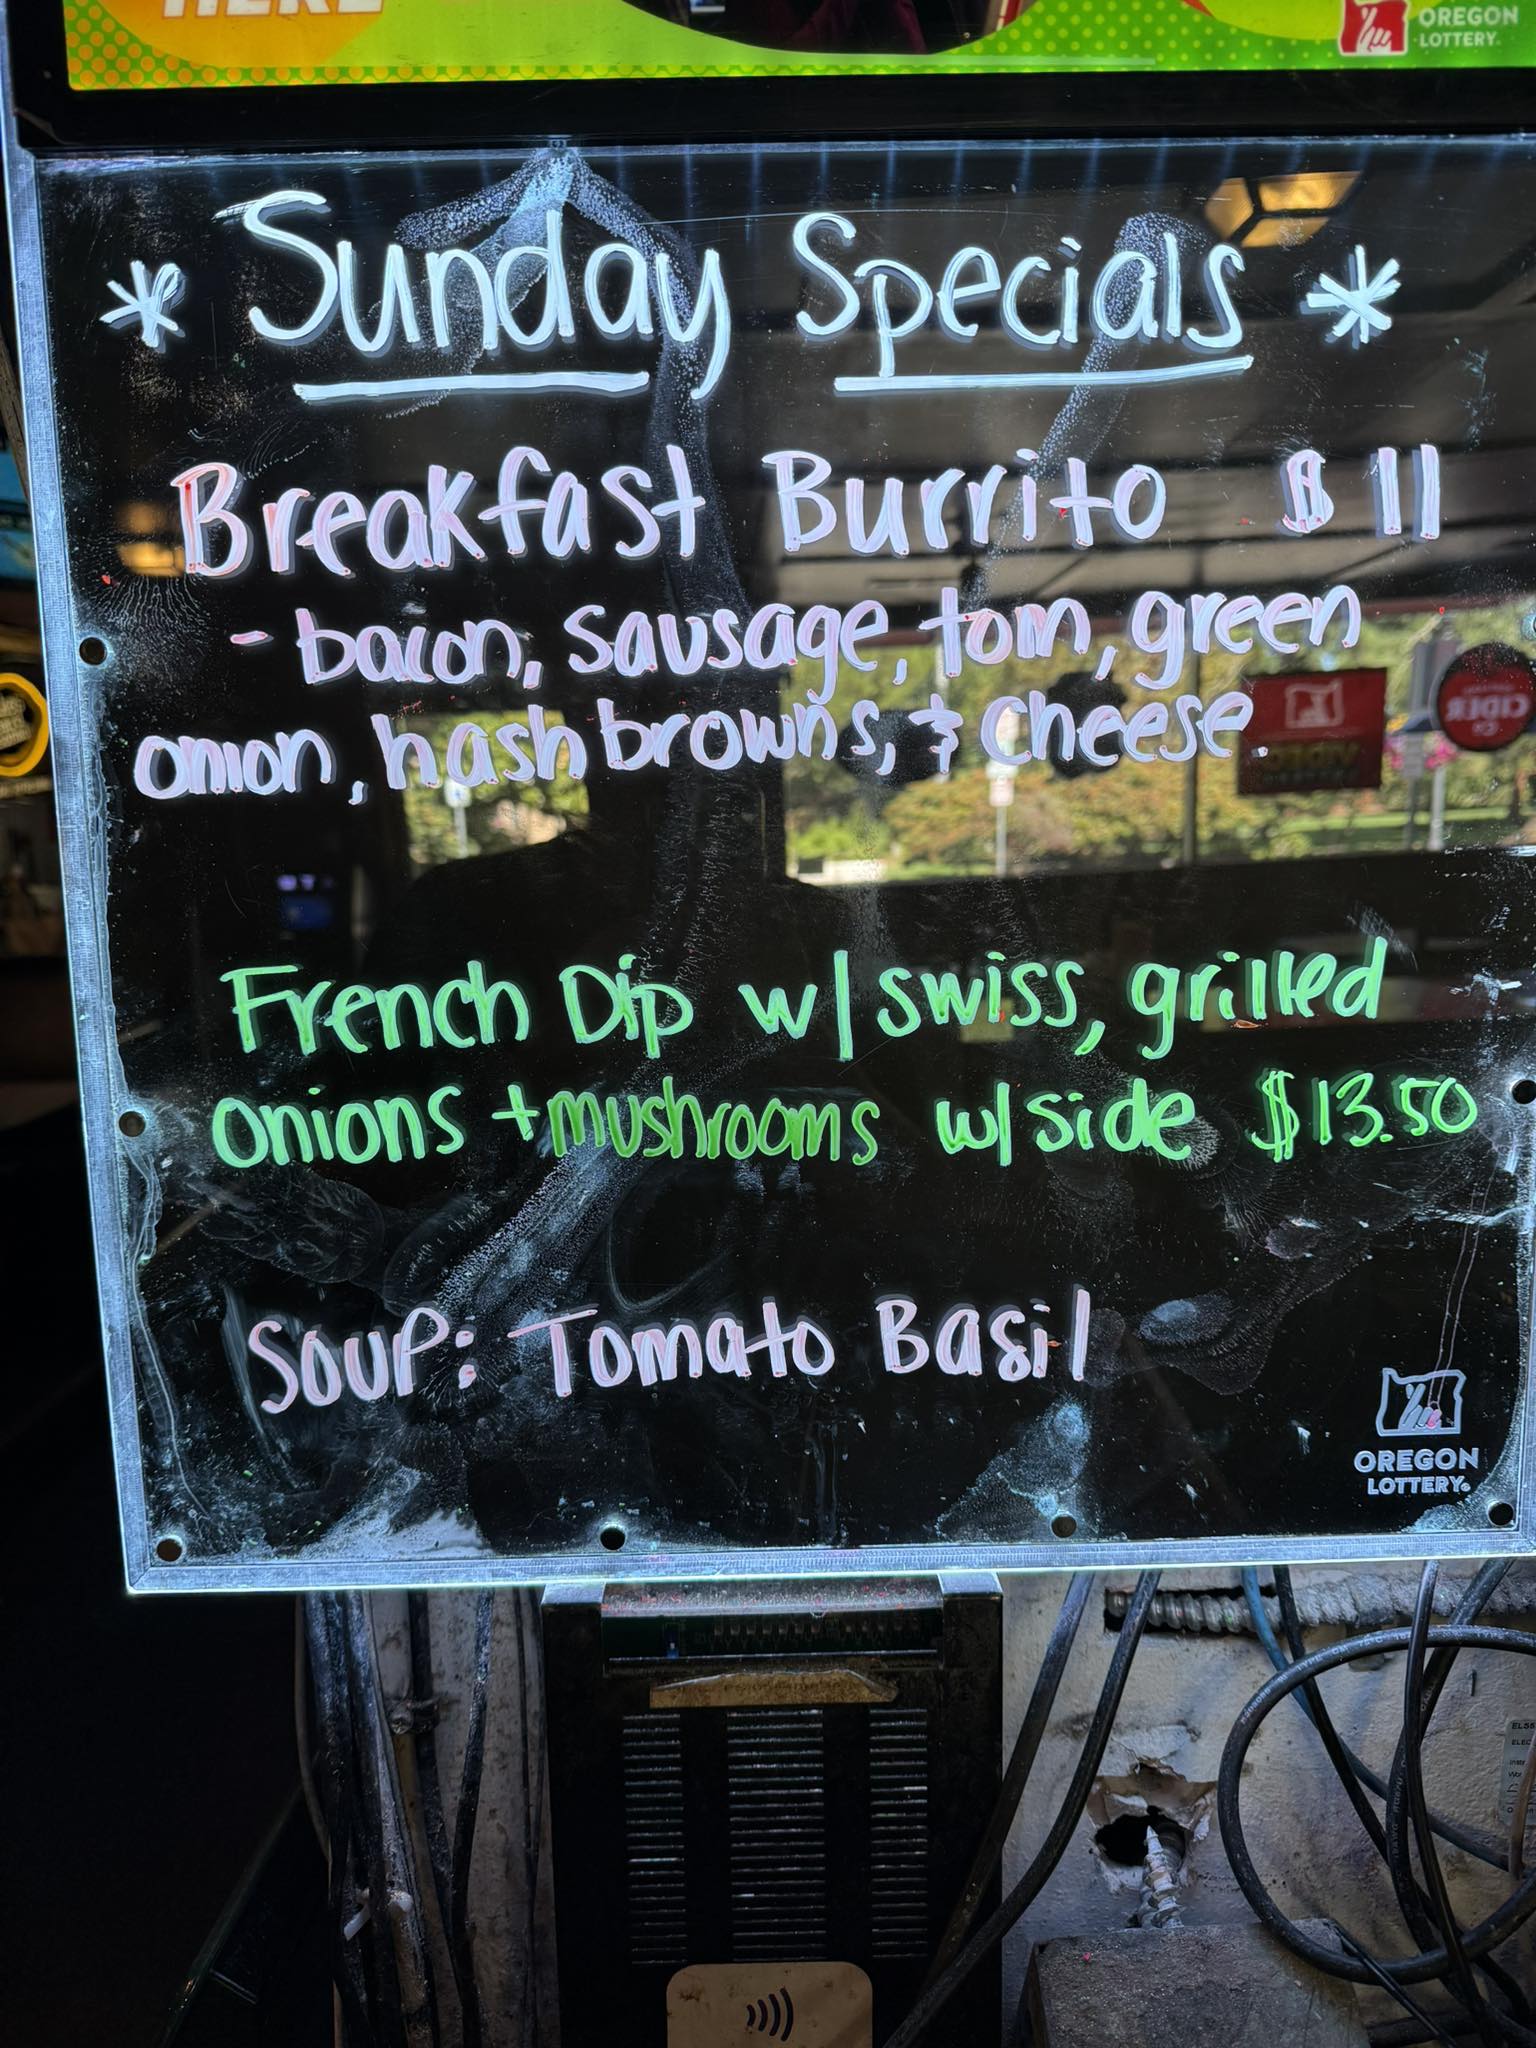 HERE
OREGON
LOTTERY.
* Sunday Specials *
Breakfast Burrito $11
- bacon, sausage, tom, green
onion, hashbrowns, & cheese.
French Dip w/ swiss, grilled
onions + mushrooms w/ side $13.50
Soup: Tomato Basil
OREGON
LOTTERY.
CIDER